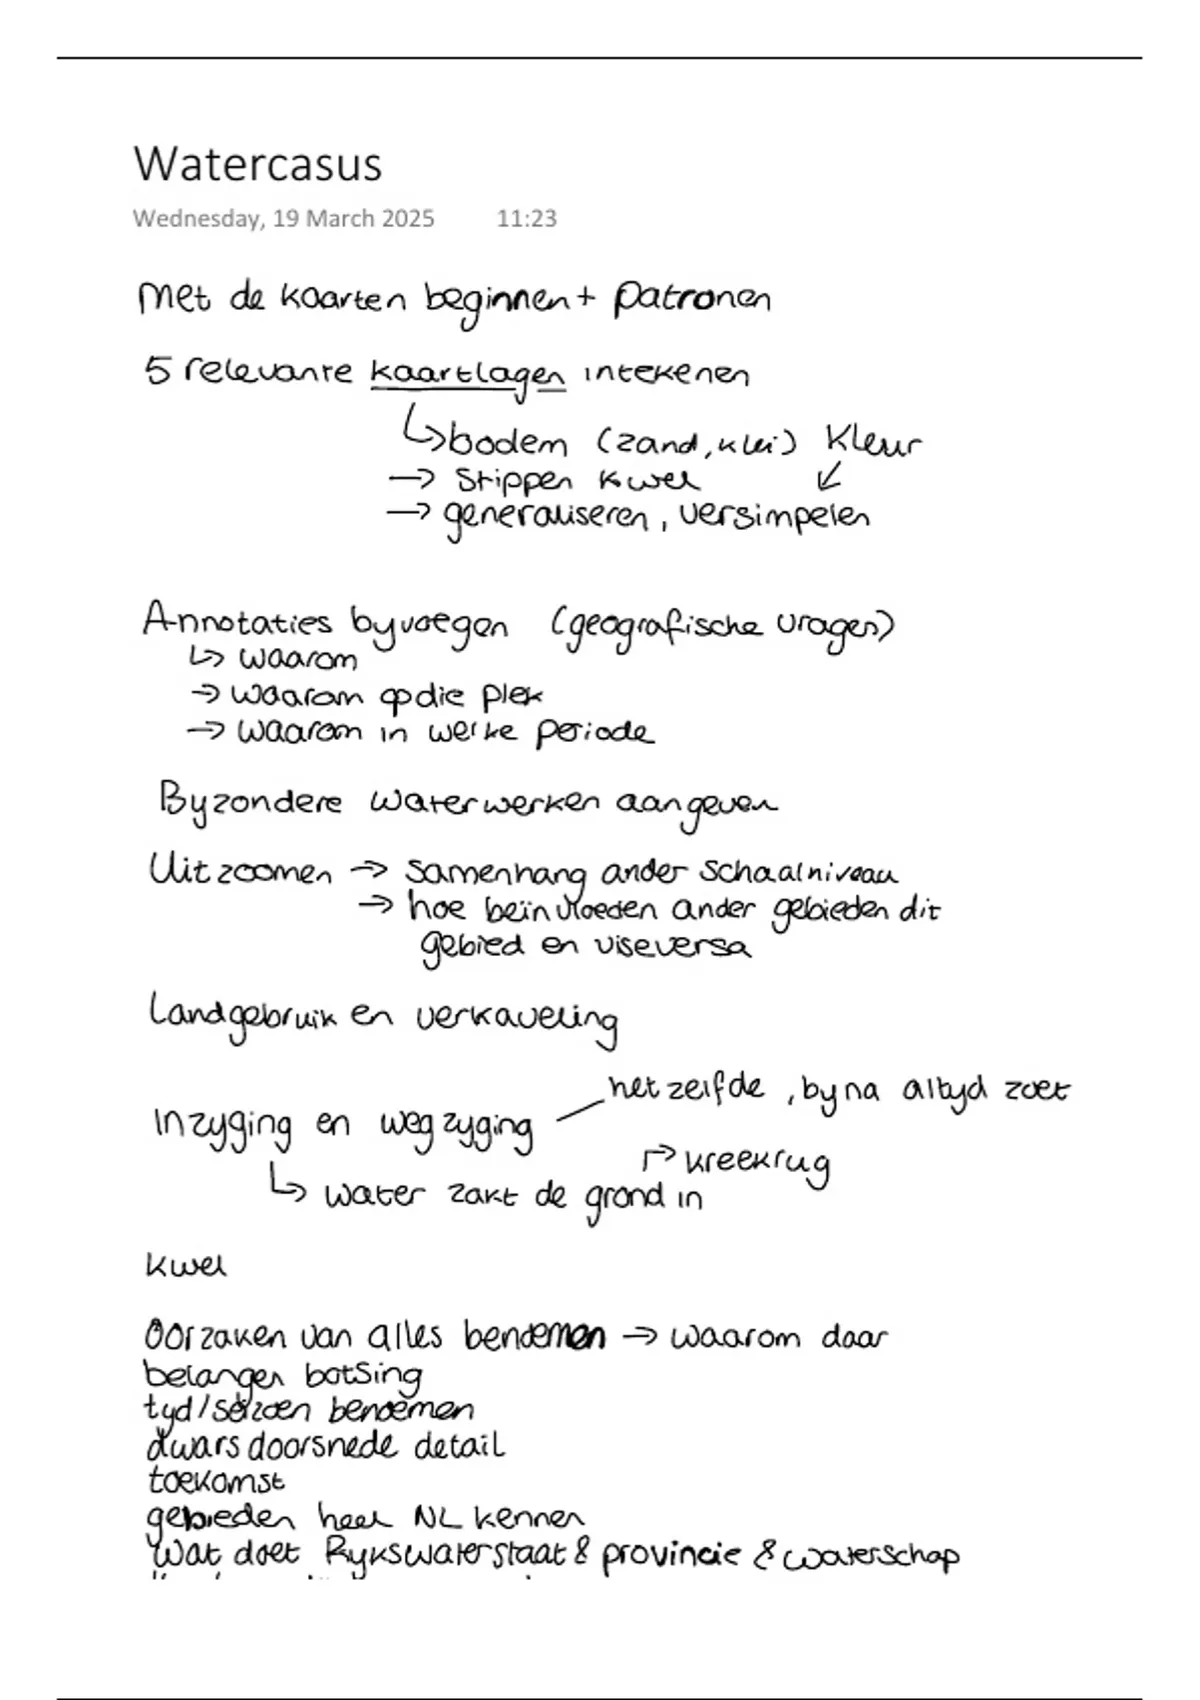 Watercasus
Wednesday, 19 March 2025 11:23
Met de kaarten beginnen + patronen
5 relevante kaartlagen intekenen
↳ bodem (zand, klei) Kleur
→ Stippen kwel ↙
→ generaliseren, versimpelen
Annotaties byvoegen (geografische vragen)
↳ waarom
→ waarom op die plek
→ waarom in welke periode
Byzondere waterwerken aangeven
Uitzoomen → samenhang ander schaalniveau
→ hoe beïnvloeden ander gebieden dit
gebied en viseversa
Landgebruik en verkaveling
het zelfde, byna altyd zoet
Inzyging en wegzyging
↱ kreekrug
↳ water zakt de grond in
kwel
Oorzaken van alles benoemen → waarom daar
belangen botsing
tyd/seizoen benoemen
dwarsdoorsnede detail
toekomst
gebieden heel NL kennen
Wat doet Rykswaterstaat & provincie & waterschap